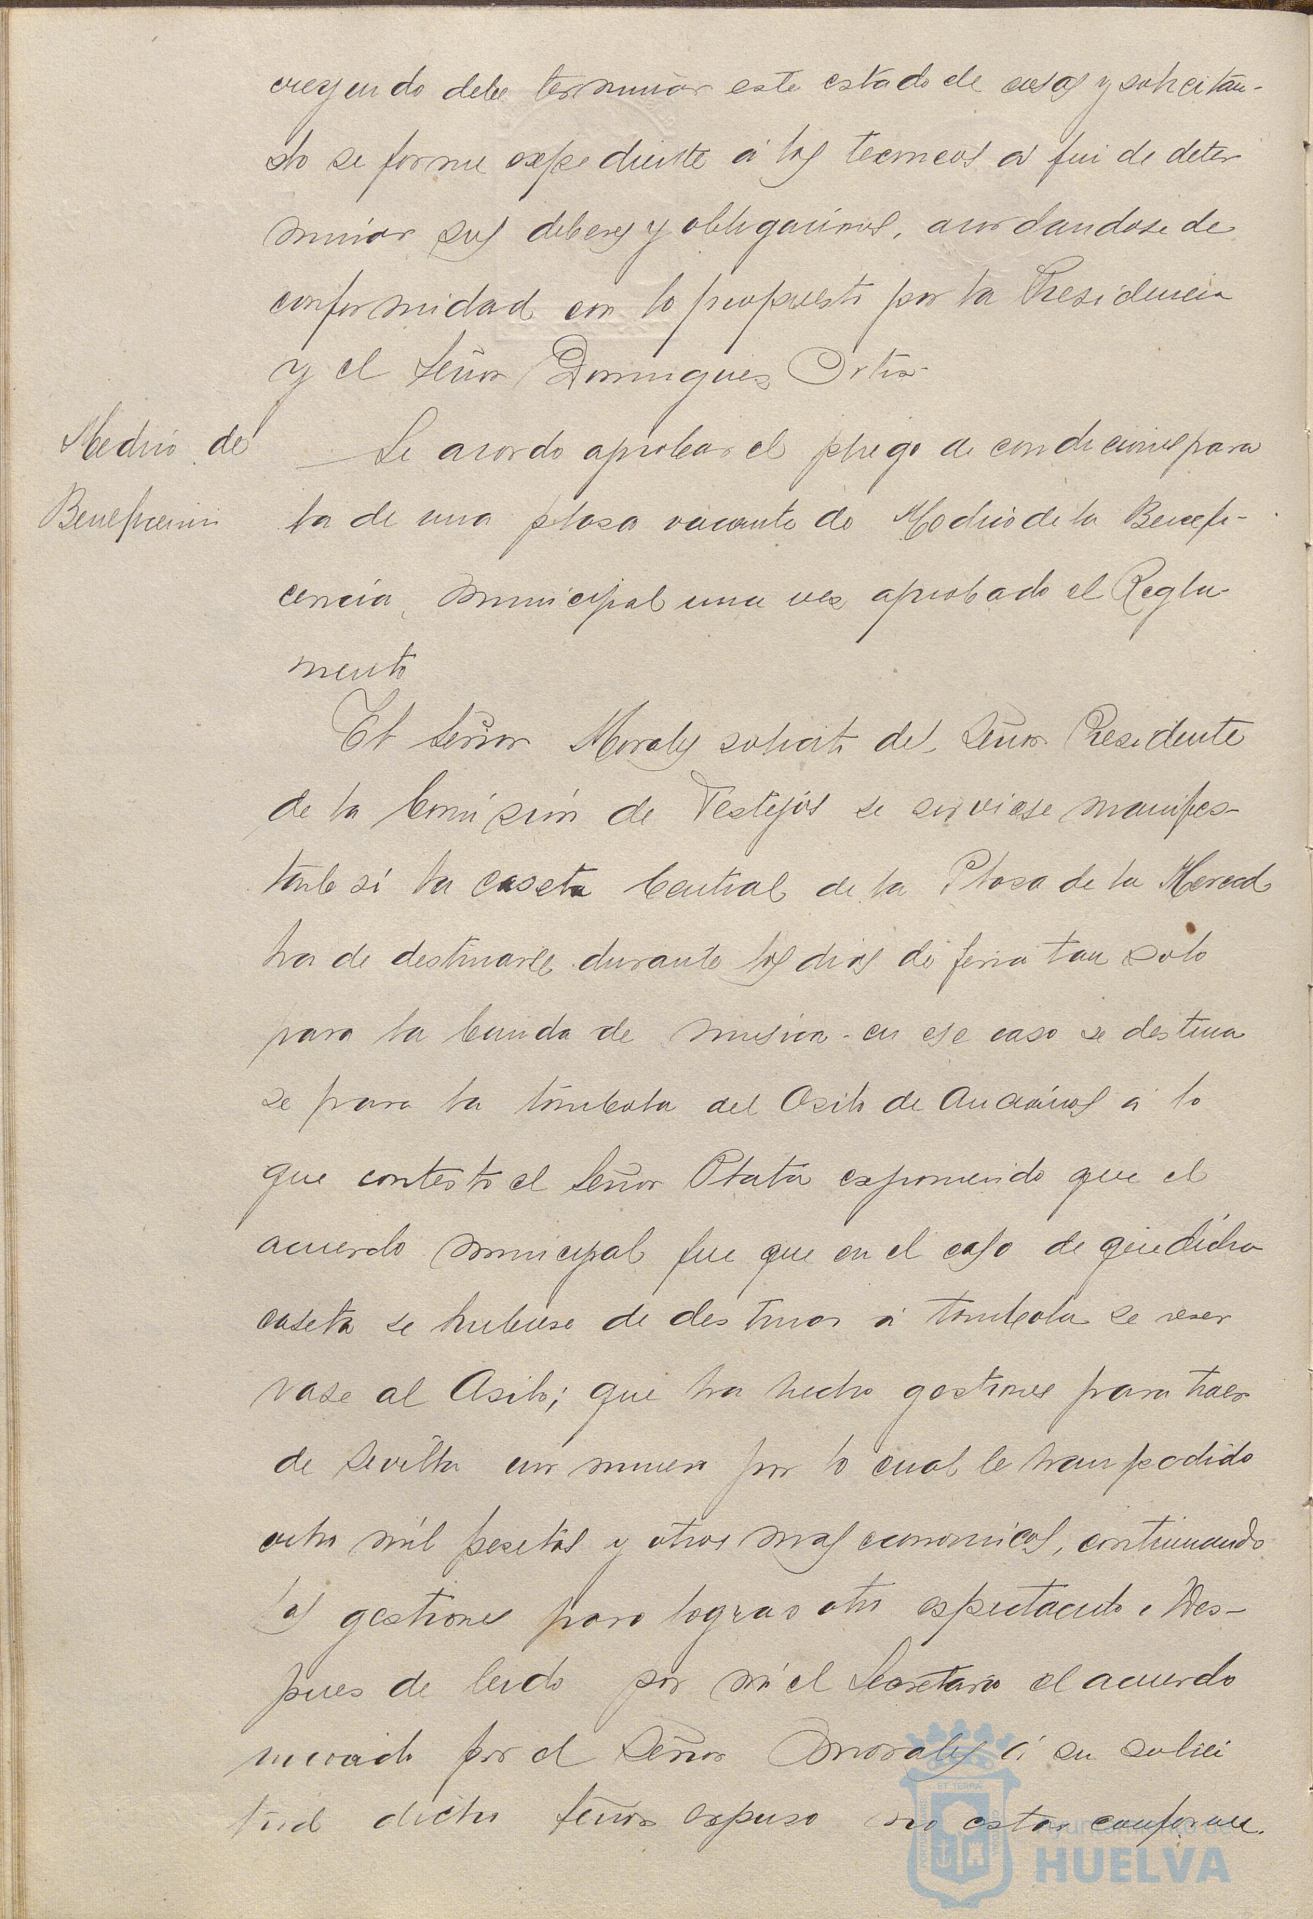 creyendo debe terminar este estado de cosas y solicitan-
do se forme expediente á los tecnicos á fin de deter
minar sus deberes y obligaciones, acordandose de
conformidad con lo propuesto por la Presidencia
y el Señor Domingues Ortiz.
Medico de
Beneficencia
Se acordo aprobar el pliego de condiciones para
la de una plasa vacante de Medico de la Benefi-
cencia, municipal una ves aprobado el Regla-
mento
El Señor Morales solicito del Señor Presidente
de la Comisión de Festejos se sirviese manifes-
tarle si la caseta Central de la Plasa de la Merced
ha de destinarse durante los dias de feria tan solo
para la banda de musica - en ese caso se destina
se para la tómbola del Asilo de Ancianos á lo
que contesto el Señor Plata exponiendo que el
acuerdo municipal fue que en el caso de que dicha
caseta se hubiese de destinar á tombola se reser
vase al Asilo; que ha hecho gestiones para traer
de Sevilla un por lo cual le han pedido
ocho mil pesetas y otros mas economicos, continuando
las gestiones para lograr otro espectaculo. Des-
pues de leido por mi el Secretario el acuerdo
invocado por el Señor Morales á su solici
tud dicho Señor expuso no estar conforme
ET TERRÆ
Ayuntamiento de
HUELVA